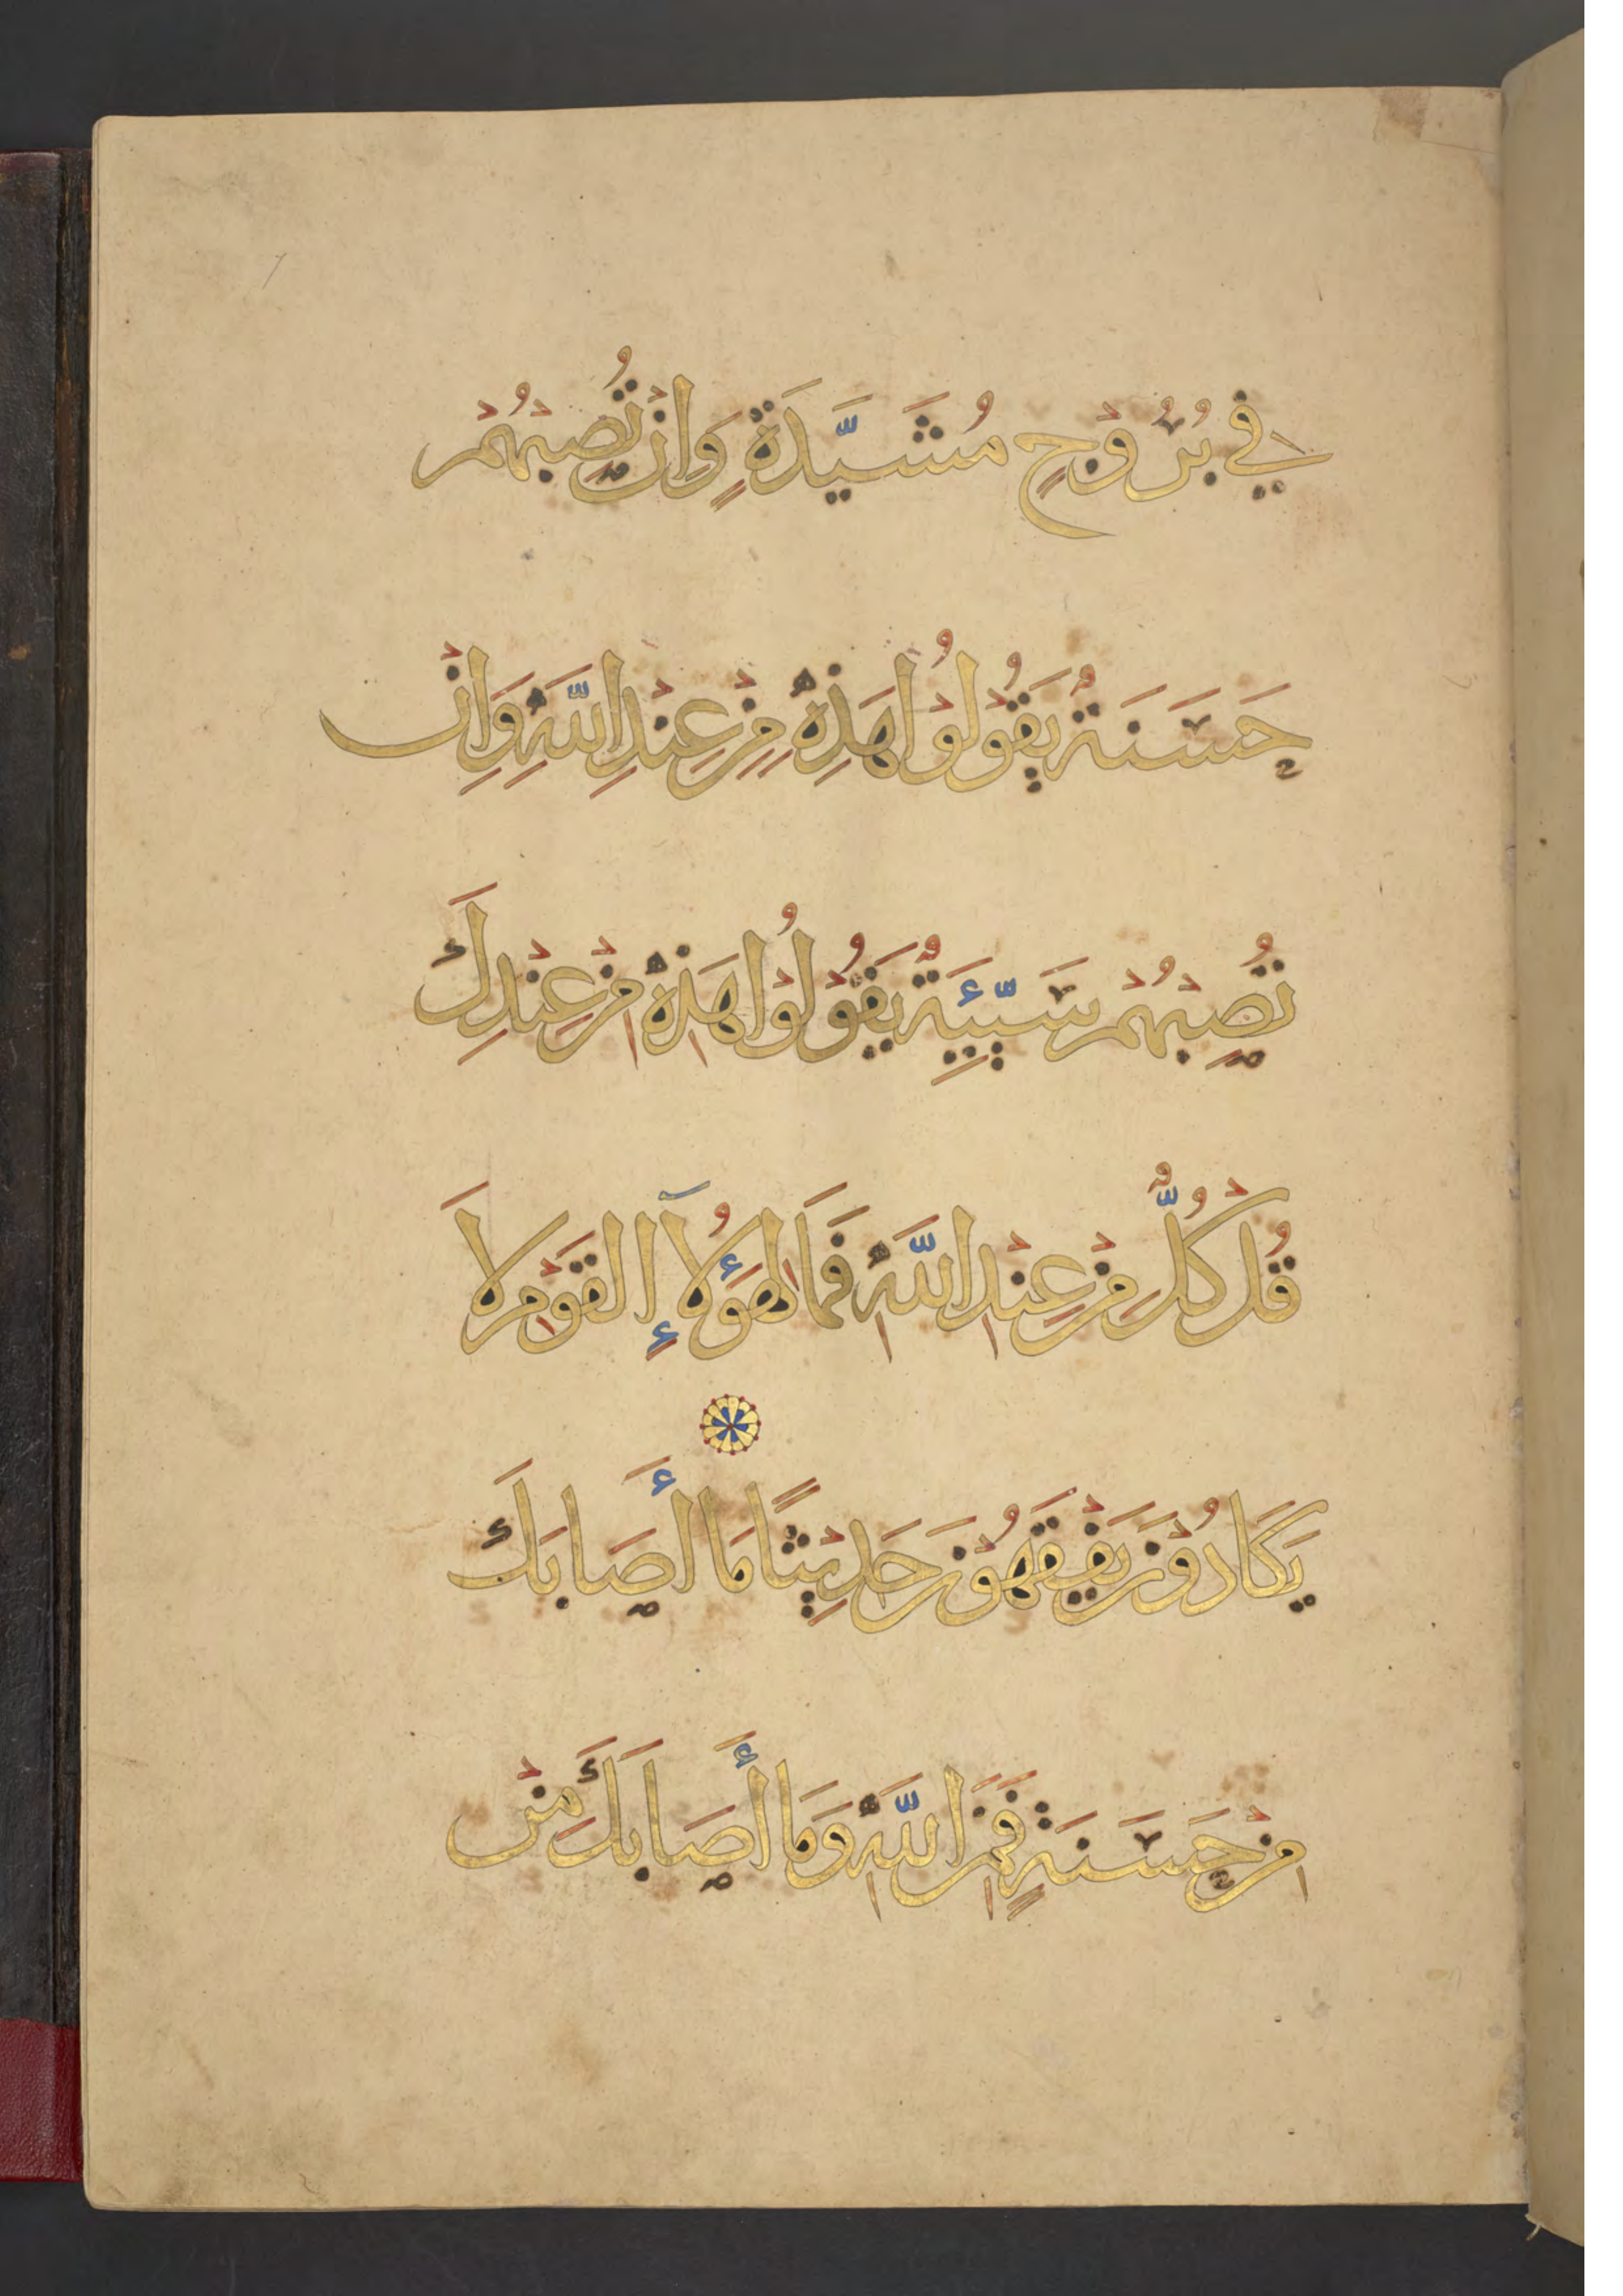 فِي بُرُوْجٍ مُشَيَّدَةٍ وَاِنْ تُصِبْهُمْ
حَسَنَةٌ يَقُوْلُوْا هَذِهِ مِنْ عِنْدِ اللَّهِ وَاِنْ
تُصِبْهُمْ سَيِّئَةٌ يَقُوْلُوْا هَذِهِ مِنْ عِنْدِكَ
قُلْ كُلٌّ مِنْ عِنْدِ اللَّهِ فَمَالِ هَؤُلَآءِ الْقَوْمِ لَا
يَكَادُوْنَ يَفْقَهُوْنَ حَدِيْثًا مَا أَصَابَكَ
مِنْ حَسَنَةٍ فَمِنَ اللَّهِ وَمَا أَصَابَكَ مِنْ